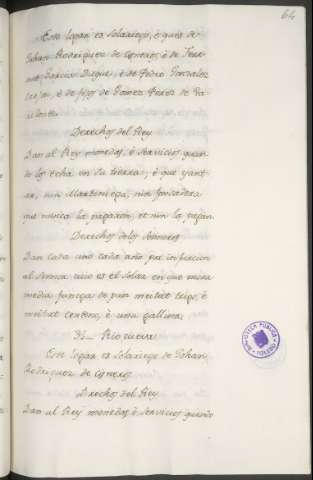 64
Este logar es solariego, è que es de
Johan Rodriguez de Cisneros, è de Ferr
nant Garcia Duque, è de Pedro Gonzalez
è de fijos de Gomez Perez de Va
Derechos del Rey
Dan al Rey monedas, è servicios quan
do los echa en su tierra; è que yant
ar, nin Martiniega, nin fonsadera
que nunca la pagaron, et nin la pagan.
Derechos de los Señores
Dan cada uno cada año por infurcion
al Sennor cuio es el solar en que mora
media fanega de pan meitat trigo, è
meitat centeno, è una gallina.
Rio cueva
Este logar es solariego de Johan
Rodriguez de Cisneros
Derechos del Rey
Dan al Rey monedas, è servicios quando
BIBLIOTECA PUBLICA
TOLEDO